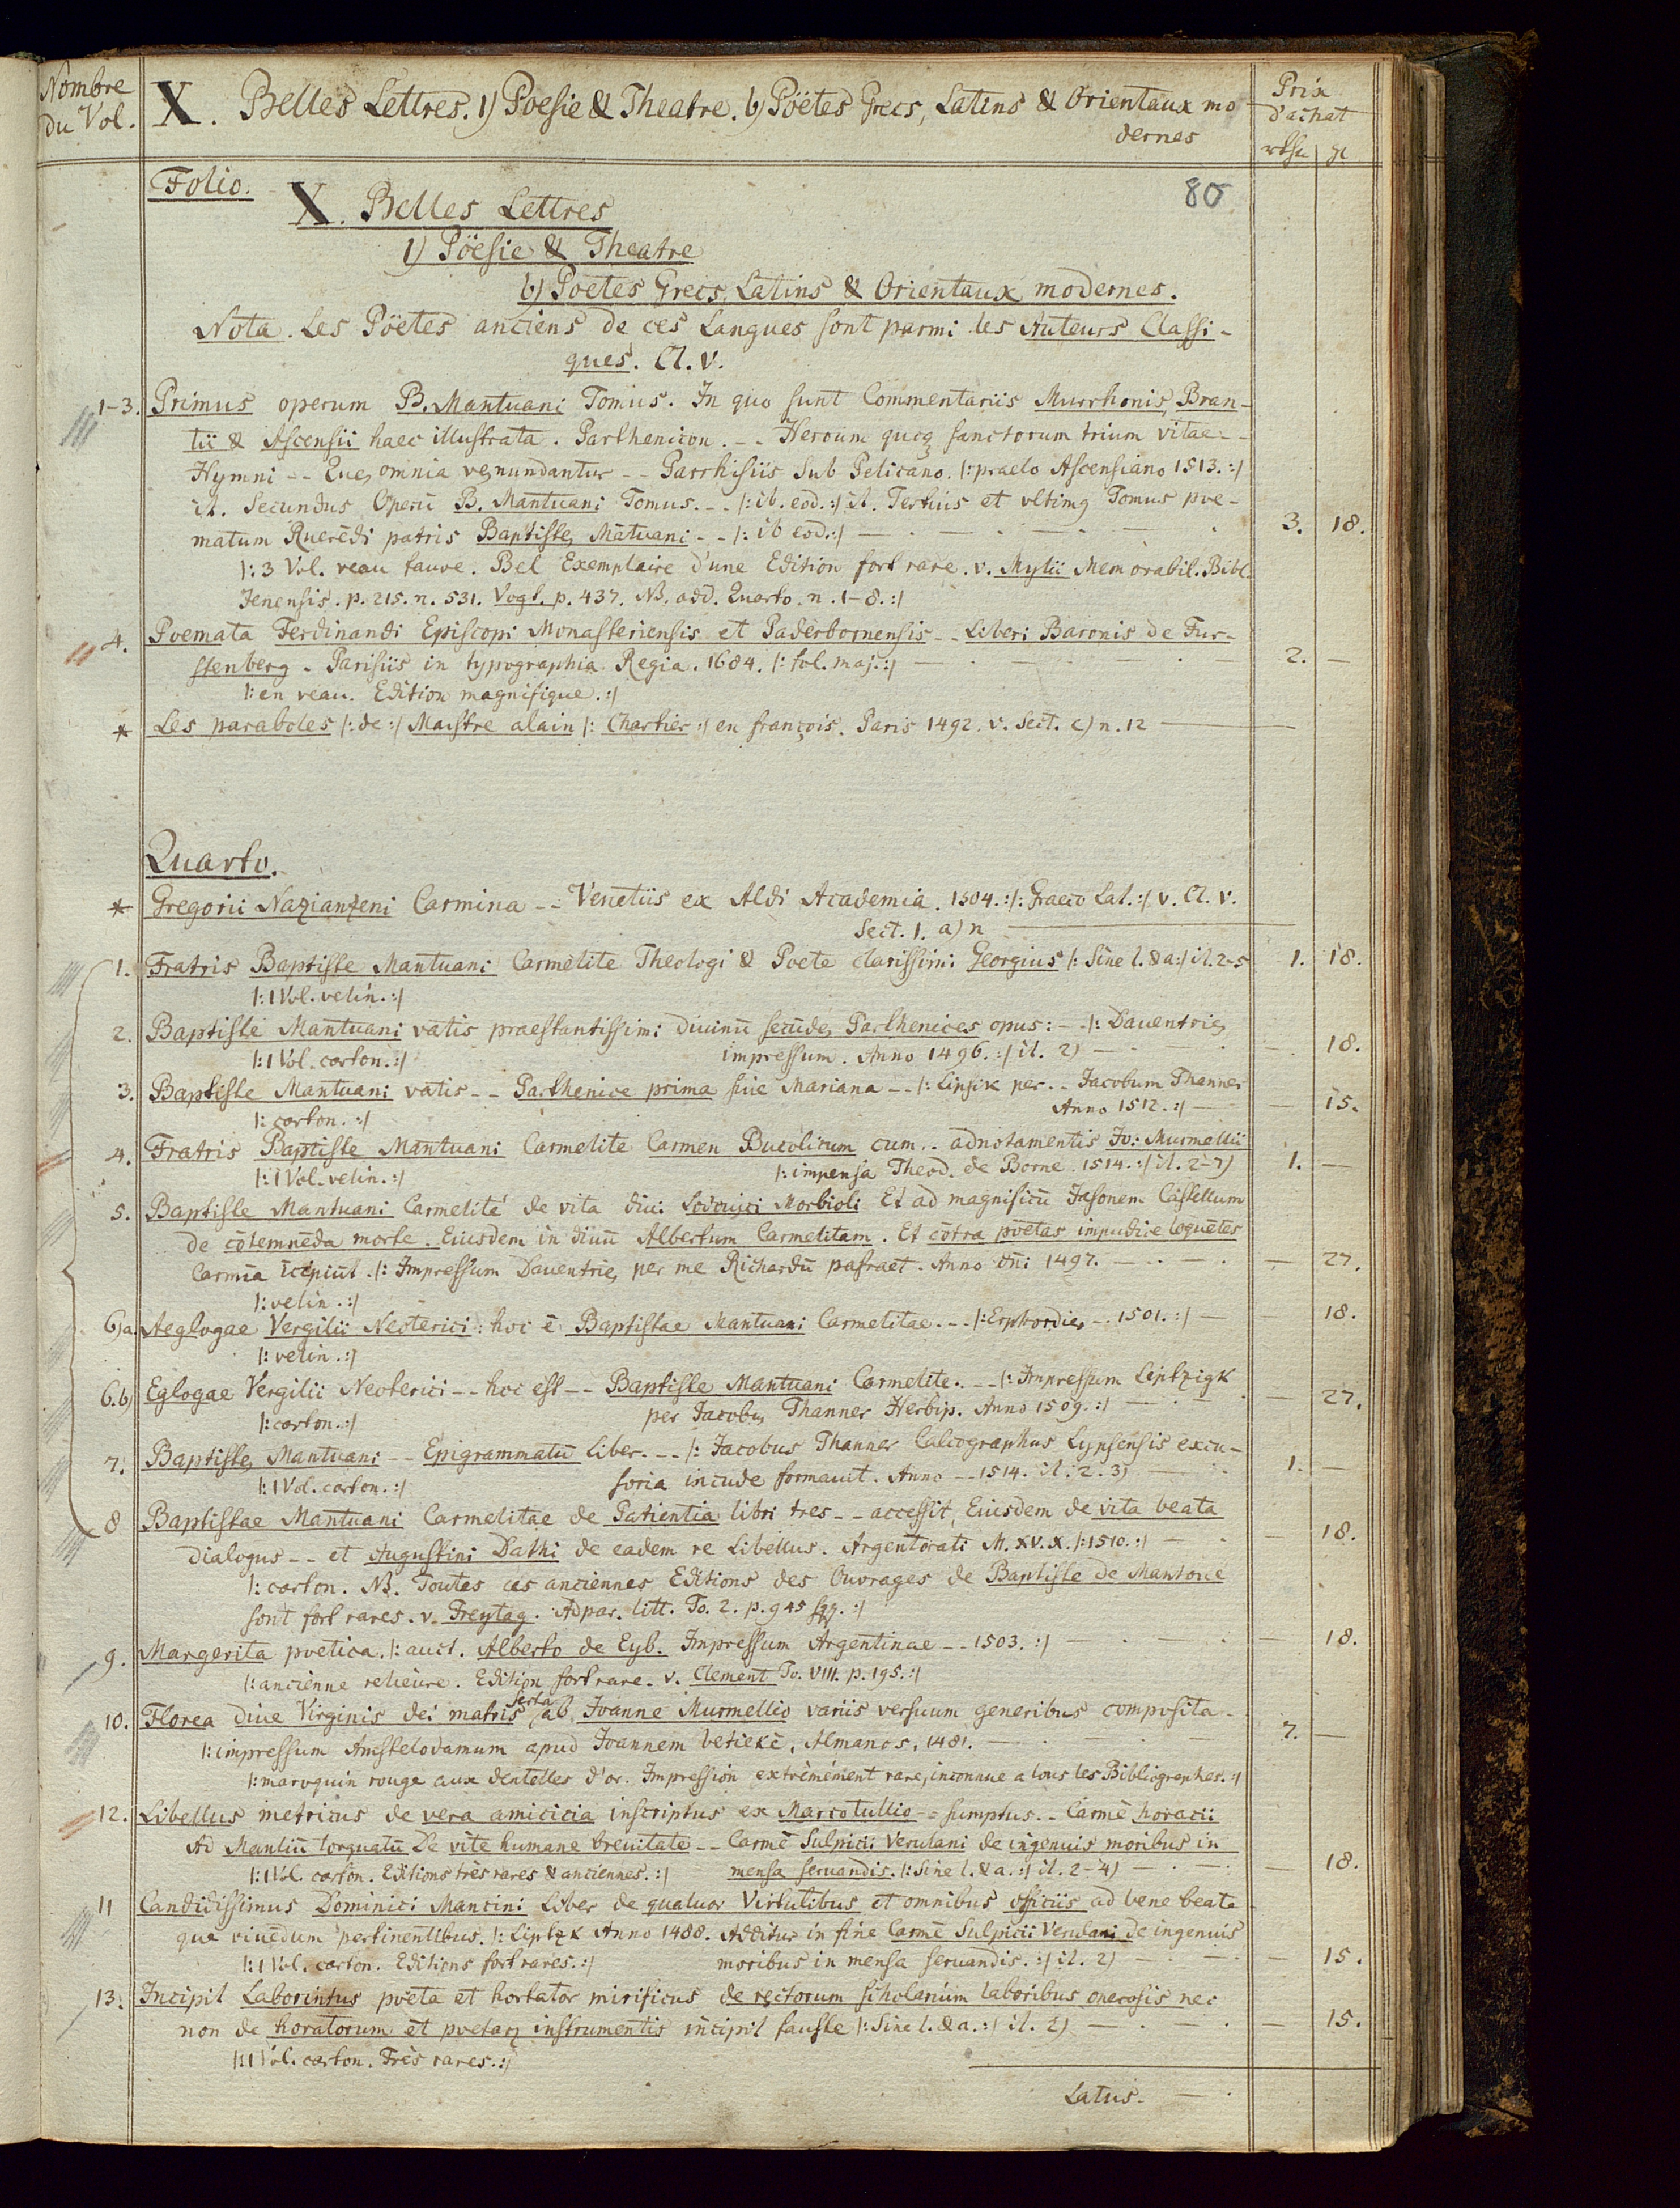 Nombre du Vol.
X. Belles Lettres. 1) Poesie & Theatre. b) Pöetes Grecs, Latins & Orientaux mo
dernes
Prix d'achat
rthr gl
Folio.
80
X. Belles Lettres
1) Pöesie & Theatre
b) Poetes Grecs, Latins & Orientaux modernes.
Nota. Les Pöetes anciens de ces Langues sont parmi les Auteurs Classi-
ques. Cl. V.
1-3. Primus operum B. Mantuani Tomus. In quo sunt Commentariis Murrhonis, Bran-
tii & Ascensii haec illustrata. Parthenicon. -- Heroum quoq sanctorum trium vitae --
Hymni -- Que omnia venundantur -- Parrhisiis sub Pelicano. |: praelo Ascensiano 1513. :|
it. Secundus Operū B. Mantuani Tomus. -- |: ib. eod. :| it. Tertius et vltimq Tomus poe-
matum Ruerēdi patris Baptiste Mātuani -- |: ib eod. :| — 3. 18.
|: 3 Vol. veau fauve. Bel Exemplaire d'une Edition fort rare. v. Mylii Memorabil. Bibl.
Jenensis. p. 215. n. 531. Vogt. p. 437. NB. add. Quarto. n. 1-8. :|
4. Poemata Ferdinandi Episcopi Monasteriensis et Paderbornensis -- Liberi Baronis de Fur-
stenberg - Parisiis in typographia Regia. 1684. |: fol. maj. :| — 2. —
|: en veau. Edition magnifique. :|
* Les paraboles |: de :| Maistre alain |: Chartier :| en françois. Paris 1492. v. Sect. c) n. 12 —
Quarto.
* Gregorii Nazianzeni Carmina -- Venetiis ex Aldi Academia. 1504. :|: Graeco Lat. :| v. Cl. V.
Sect. 1. a) n —
1. Fratris Baptiste Mantuani Carmelite Theologi & Poete clarissimi Georgius |: Sine l. & a :| it. 2-5 1. 18.
|: 1 Vol. velin. :|
2. Baptiste Mantuani vatis praestantissimi diuinū secūde Parthenices opus: -- |: Dauentrie
|: 1 Vol. carton. :| impressum. Anno 1496. :| it. 2) — 18.
3. Baptiste Mantuani vatis -- Parthenice prima siue Mariana -- |: Lipsik per -- Jacobum Thanner
|: carton. :| Anno 1512. :| — 15.
4. Fratris Baptiste Mantuani Carmelite Carmen Bucolicum cum -- adnotamentis Jo: Murmellii
|: 1 Vol. velin. :| |: impensa Theod. de Borne. 1514. :| it. 2-7) 1. —
5. Baptiste Mantuani Carmelite de vita diui Lodouici Morbioli Et ad magnificū Jasonem Castellum
de cōtemnēda morte. Eiusdem in diuū Albertum Carmelitam. Et cōtra pöetas impudice loquētes
Carmīa īcipiūt. |: Impressum Dauentrie per me Richardū pafraet. Anno dn̄i 1497. — 27.
|: velin. :|
6) a. Aeglogae Vergilii Neoterici: hoc ē Baptistae Mantuani Carmelitae. -- |: Erphordie -- 1501. :| — 18.
|: velin. :|
6. b) Eglogae Vergilii Neoterici -- hoc est -- Baptiste Mantuani Carmelite. -- |: Impressum Leiptzigk
|: carton. :| per Jacobu Thanner Herbip. Anno 1509. :| — 27.
7. Baptiste Mantuani -- Epigrammatū Liber. -- |: Jacobus Thanner Calcographus Lypsensis excu-
|: 1 Vol. carton. :| soria incude formauit. Anno -- 1514. it. 2. 3) — 1. —
8 Baptistae Mantuani Carmelitae de Patientia libri tres -- accessit, Eiusdem de vita beata
dialogus -- et Augustini Dathi de eadem re Libellus. Argentorati M. XV. X. |: 1510. :| — 18.
|: carton. NB. Toutes ces anciennes Editions des Ouvrages de Baptiste de Mantoue
sont fort rares. v. Freytag. Adpar. litt. To. 2. p. 945 sqq. :|
9. Margerita poetica. |: auct. Alberto de Eyb. Impressum Argentinae -- 1503. :| — 18.
|: ancienne relieure. Edition fort rare. v. Clement To. VIII. p. 195. :|
10. Florea diue Virginis dei matris serta ab Joanne Murmellio variis versuum generibus composita -
|: impressum Amstelodamum apud Joannem betiekē, Almanos, 1481. — 7. —
|: maroquin rouge aux dentelles d'or. Impression extrèmément rare, inconnue a tous les Bibliographes. :|
12. Libellus metricus de vera amicicia inscriptus ex Marcotullio -- sumptus. - Carmē horacii
Ad Manliū torquatū De vite humane breuitate -- Carmē Sulpicii Verulani de ingenuis moribus in
|: 1 Vol. carton. Editions très rares & anciennes. :| mensa seruandis. |: Sine l. & a. :| it. 2-4) — 18.
11 Candidissimus Dominici Mancini Liber de quatuor Virtutibus et omnibus officiis ad bene beate
que viuēdum pertinentibus. |: Liptzk Anno 1488. Additur in fine Carmē Sulpicii Verulani De ingenuis
|: 1 Vol. carton. Editions fort rares. :| moribus in mensa seruandis. :| it. 2) — 15.
13. Incipit Laborintus pöeta et hortator mirificus de rectorum scholarium laboribus onerosis nec
non de horatorum et poetarz instrumentis incipit fauste |: Sine l. & a. :| it. 2) — 15.
|: 1 Vol. carton. Très rares. :|
Latus. —